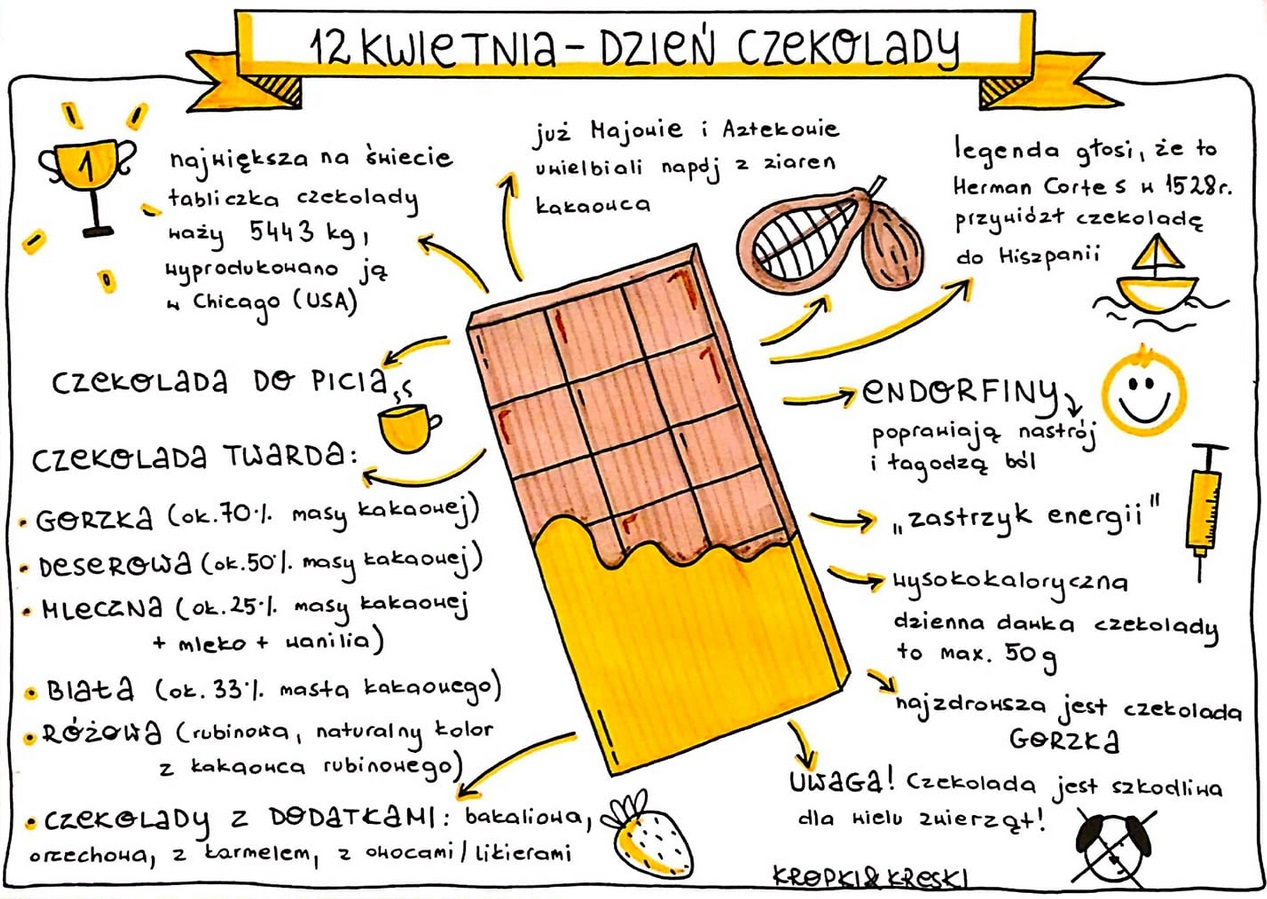 12 KWIETNIA - DZIEŃ CZEKOLADY
największa na świecie
tabliczka czekolady
waży 5443 kg,
wyprodukowano ją
w Chicago (USA)
już Majowie i Aztekowie
uwielbiali napój z ziaren
kakaowca
legenda głosi, że to
Herman Cortes w 1528r.
przywiózł czekoladę
do Hiszpanii
1
CZEKOLADA DO PICIA
CZEKOLADA TWARDA:
• GORZKA (ok. 70% masy kakaowej)
• DESEROWA (ok. 50% masy kakaowej)
• MLECZNA (ok. 25% masy kakaowej
+ mleko + wanilia)
• BIAŁA (ok. 33% masła kakaowego)
• RÓŻOWA (rubinowa, naturalny kolor
z kakaowca rubinowego)
• CZEKOLADY Z DODATKAMI: bakaliowa,
orzechowa, z karmelem, z owocami/likierami
ENDORFINY
poprawiają nastrój
i łagodzą ból
„zastrzyk energii"
wysokokaloryczna
dzienna dawka czekolady
to max. 50 g
najzdrowsza jest czekolada
GORZKA
UWAGA! Czekolada jest szkodliwa
dla wielu zwierząt!
KROPKI&KRESKI